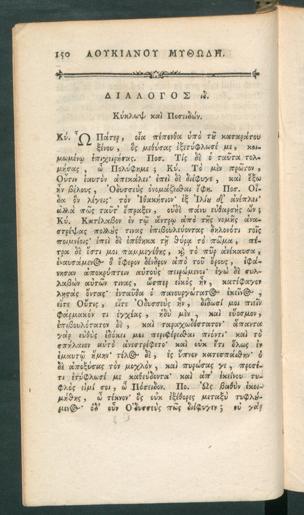 150 ΛΟΥΚΙΑΝΟΥ ΜΥΘΩΔΗ.
ΔΙΑΛΟΓΟΣ
Κύκλωψ καὶ Ποσειδῶν.
Κύ. Ὦ Πάτερ, οἷα πέπονθα ὑπὸ τῦ καταράτου
ξένου, ὃς μεθύσας ἐξετύφλωσέ με, κοι-
μωμένῳ ἐπιχειρήσας. Ποσ. Τίς δὲ ὁ ταῦτα τολ-
μήσας, ὦ Πολύφημε; Κύ. Τὸ μὲν πρῶτον,
Οὖτιν ἑαυτὸν ἀπεκάλει· ἐπεὶ δὲ διέφυγε, καὶ ἔξω
ἦν βέλους, Ὀδυσσεὺς ὀνομάζεσθαι ἔφη. Ποσ. Οἶ-
δα ὃν λέγεις· τὸν Ἰθακήσιον· ἐξ Ἰλίυ δ' ἀνέπλει·
ἀλλὰ πῶς ταῦτ' ἔπραξεν, οὐδὲ πάνυ εὐθαρσὴς ὤν;
Κύ. Κατέλαβον ἐν τῷ ἄντρῳ ἀπὸ τῆς νομῆς ἀνα-
στρέψας πολλούς τινας ἐπιβουλεύοντας δηλονότι τοῖς
ποιμνίοις· ἐπεὶ δὲ ἐπέθηκα τῇ θύρᾳ τὸ πῶμα, πέ-
τρα δὲ ἔστι μοι παμμεγέθης, καὶ τὸ πῦρ ἀνέκαυσα,
ἐναυσάμενος ὃ ἔφερον δένδρον ἀπὸ τοῦ ὄρους, ἐφά-
νησαν ἀποκρύπτειν αὐτοὺς πειρώμενοι· ἐγὼ δὲ συλ-
λαβὼν αὐτῶν τινας, ὥσπερ εἰκὸς ἦν, κατέφαγον
λῃστὰς ὄντας· ἐνταῦθα ὁ πανουργότατος ἐκεῖνος,
εἴτε Οὖτις, εἴτε Ὀδυσσεὺς ἦν, δίδωσί μοι πιεῖν
φάρμακόν τι ἐγχέας, ἡδὺ μὲν, καὶ εὔοσμον,
ἐπιβουλότατον δὲ, καὶ ταραχωδέστατον· ἅπαντα
γὰρ εὐθὺς ἐδόκει μοι περιφέρεσθαι πιόντι· καὶ τὸ
σπήλαιον αὐτὸ ἀνεστρέφετο· καὶ οὐκ ἔτι ὅλως ἐν
ἐμαυτῷ ἤμην· τέλος δὲ, ἐς ὕπνον κατεσπάσθην· ὁ
δὲ ἀποξύσας τὸν μοχλὸν, καὶ πυρώσας γε, προσέ-
τι ἐτύφλωσέ με καθεύδοντα· καὶ ἀπ' ἐκείνου τυ-
φλός εἰμί σοι, ὦ Πόσειδον. Πο. Ὡς βαθὺν ἐκοι-
μήθης, ὦ τέκνον· ὃς οὐκ ἐξέθορες μεταξὺ τυφλώ-
μενος· ὁ δ' οὖν Ὀδυσσεὺς πῶς διέφυγεν; οὐ γὰρ